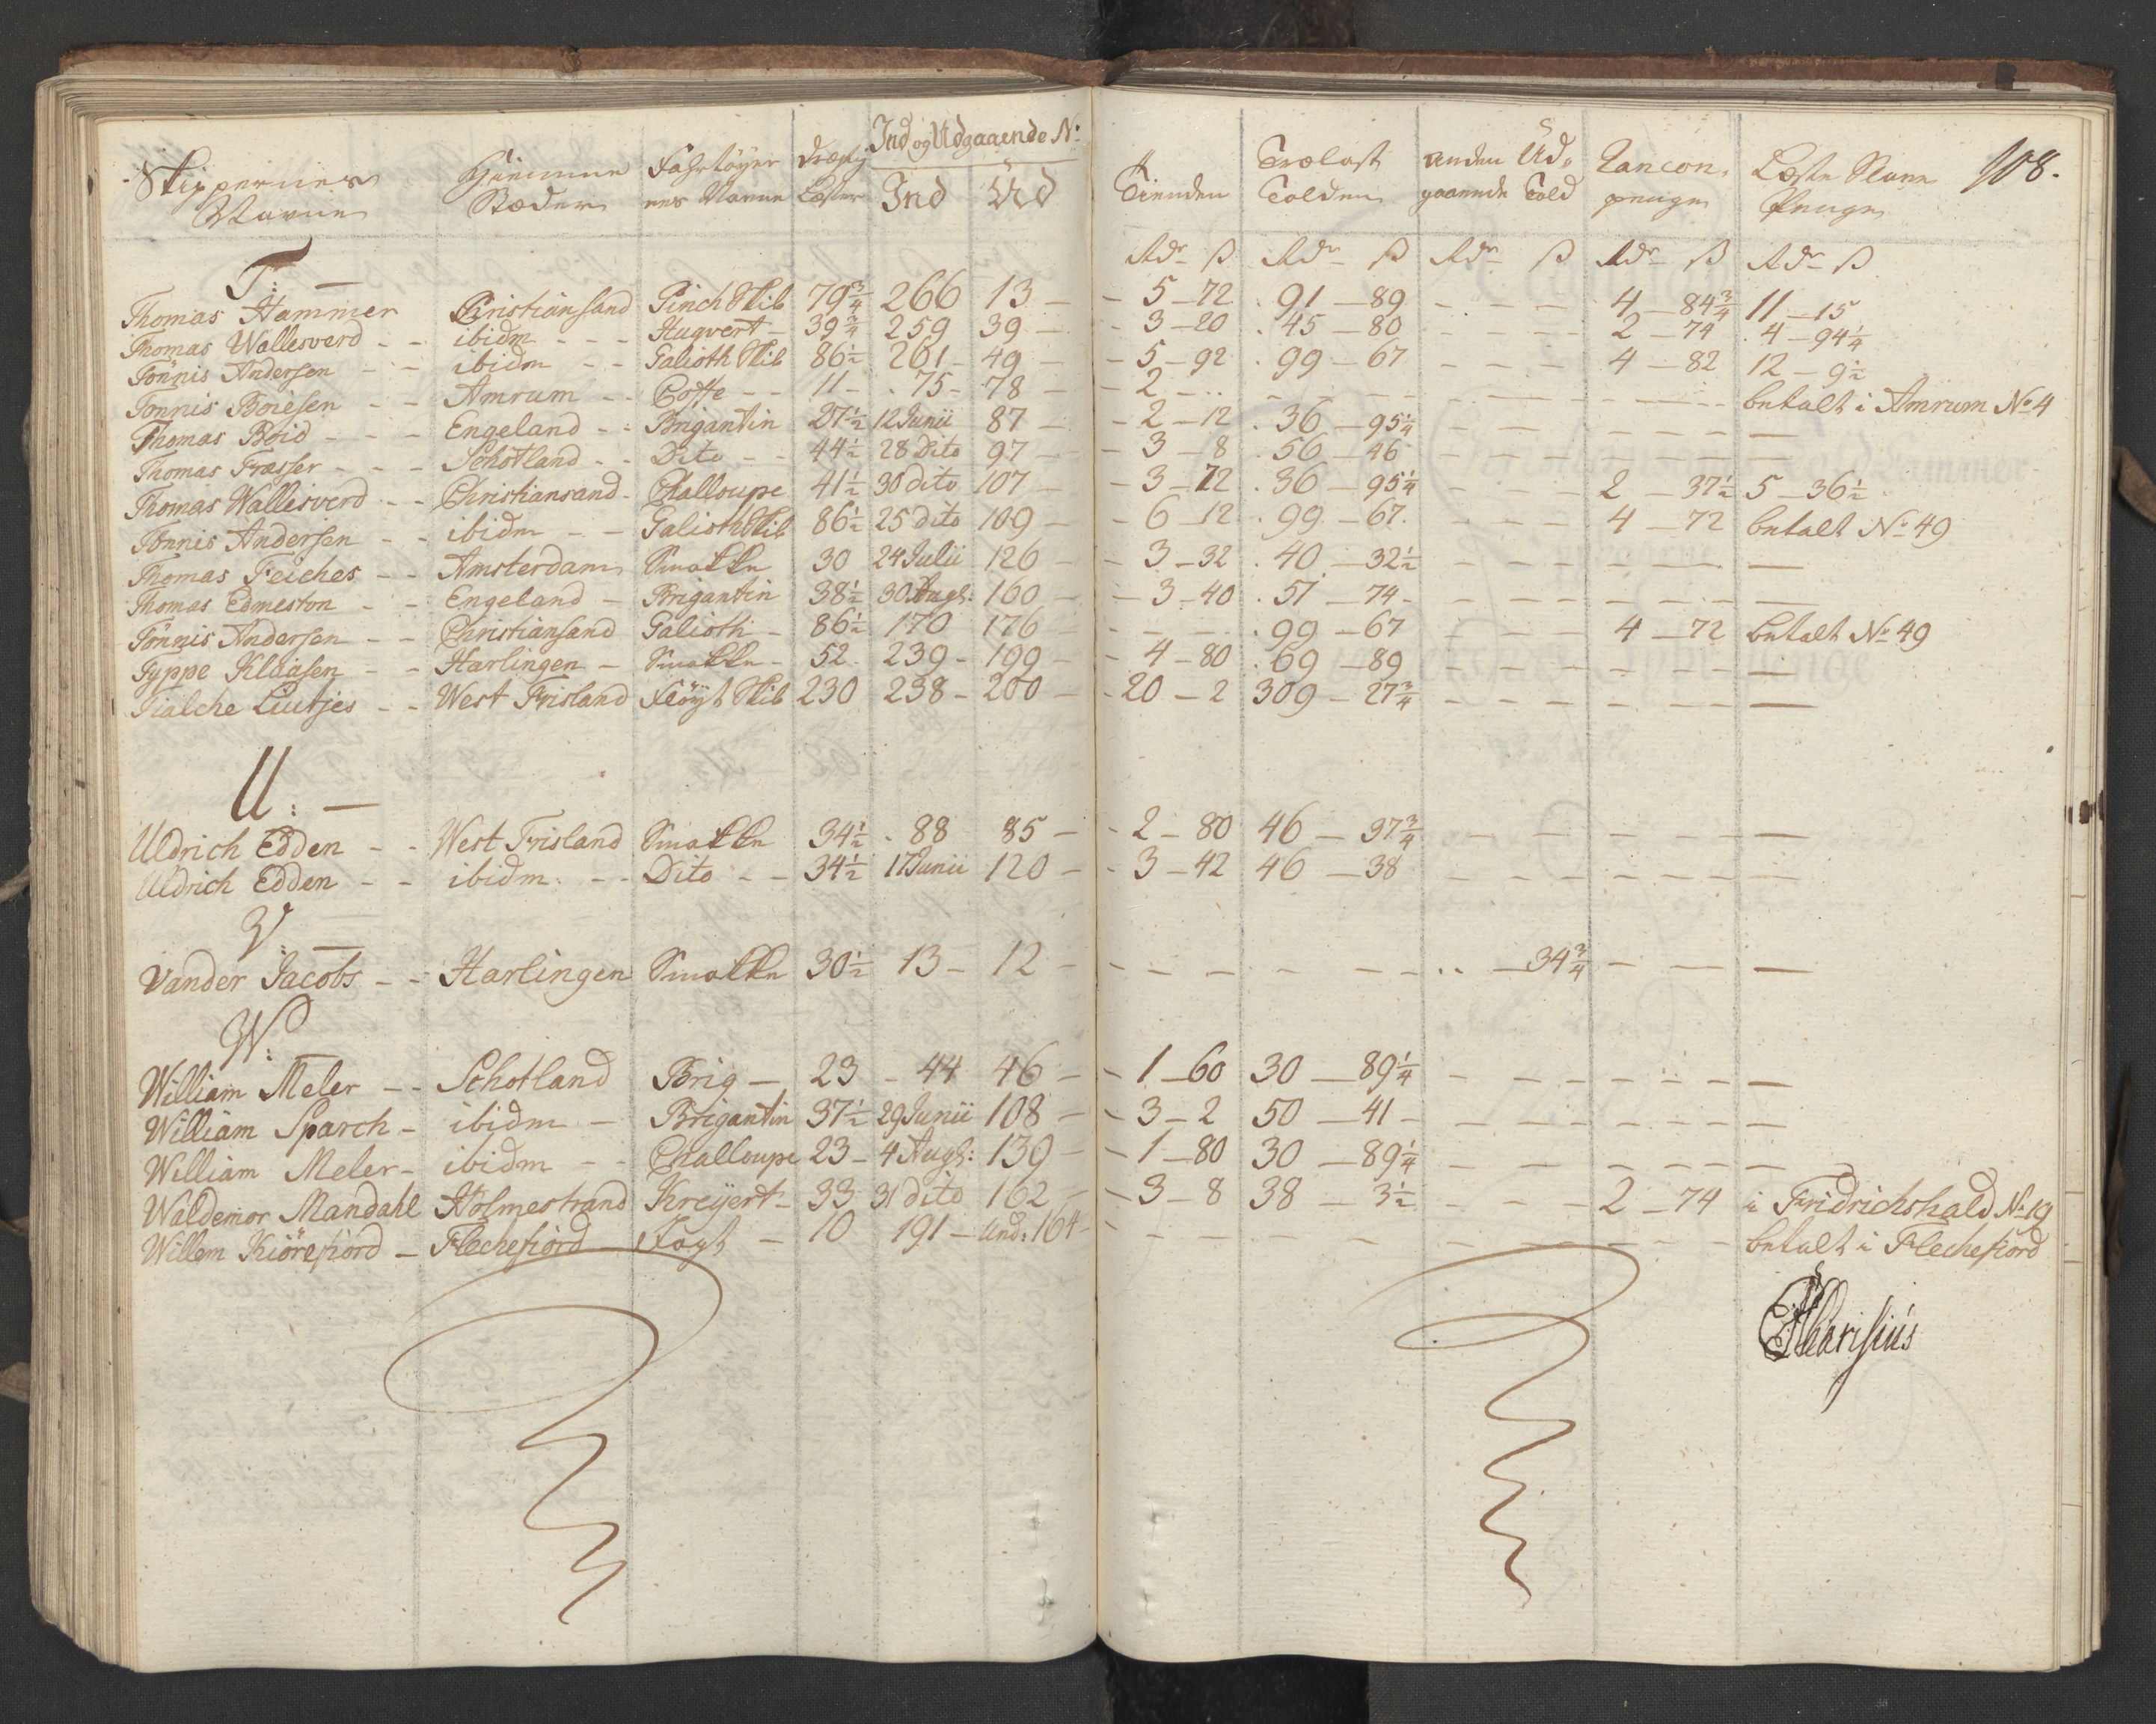 108.
Skippernes Navne | Hiemme Stæder | Fahrtöyernes Navne | Drægt. Læster | Ind og Udgaaende No: Ind | Ud | Tienden | Trælast Tolden | anden Udgaaende Told | Rancon penge | Læste Penge
Rdr ß | Rdr ß | Rdr ß | Rdr ß | Rdr ß
T: —
Thomas Hammer | Christiansand | Pinch Skib | 79 3/4 | 266 | 13 — | 5 – 72 | 91 – 89 | – – – | 4 – 84 3/4 | 11 – 15
Thomas Wallesverd | ibidm | Hugvert | 39 3/4 | 259 | 39 — | 3 – 20 | 45 – 80 | – – – | 2 – 74 | 4 – 94 1/4
Tönnis Andersen | ibidm | Galioth Skib | 86 1/2 | 261 | 49 — | 5 – 92 | 99 – 67 | – – – | 4 – 82 | 12 – 9 1/2
Tonnis Boiesen | Amrum | Coffe | 11 | 75 | 78 — | 2 – .. | – – – | – – – | – – – | betalt i Amrum No 4
Thomas Boid | Engeland | Brigantin | 27 1/2 | 12 Junii | 87 — | 2 – 12 | 36 – 95 1/4 | – – – | – – – | —
Thomas Fræsser | Schotland | Dito | 44 1/2 | 28 Dito | 97 — | 3 – 8 | 56 – 46 | – – – | – – – | —
Thomas Wallesverd | Christiansand | Challoupe | 41 1/2 | 30 dito | 107 — | 3 – 72 | 36 – 95 1/4 | – – – | 2 – 37 1/2 | 5 – 36 1/2
Tönnis Andersen | ibidm | Galioth Skib | 86 1/2 | 25 dito | 109 — | 6 – 12 | 99 – 67 | – – – | 4 – 72 | betalt No 49
Thomas Feiches | Amsterdam | Smakke | 30 | 24 Julii | 126 — | 3 – 32 | 40 – 32 1/2 | – – – | – – – | —
Thomas Edmeston | Engeland | Brigantin | 38 1/2 | 30 Augs: | 160 — | 3 – 40 | 51 – 74 | – – – | – – – | —
Tönnis Andersen | Christiansand | Galioth | 86 1/2 | 170 | 176 — | – – – | 99 – 67 | – – – | 4 – 72 | betalt No 49
Typpe Klaasen | Harlingen | Smakke | 52 | 239 | 199 — | 4 – 80 | 69 – 89 | – – – | – – – | —
Tialche Liutjes | West Frisland | Flöyt Skib | 230 | 238 | 200 — | 20 – 2 | 309 – 27 3/4 | – – – | – – – | —
U: —
Uldrich Edden | West Frisland | Smakke | 34 1/2 | 88 | 85 — | 2 – 80 | 46 – 37 3/4 | – – – | – – – | —
Uldrich Edden | ibidm: | Dito | 34 1/2 | 17 Junii | 120 — | 3 – 42 | 46 – 38 | – – – | – – – | —
V: —
Vander Jacobs | Harlingen | Smakke | 30 1/2 | 13 | 12 — | – – – | – – – | .. – 34 3/4 | – – | —
W:
William Meler | Schotland | Brig | 23 | 44 | 46 — | 1 – 60 | 30 – 89 1/4 | – – – | – – – | —
William Sparch | ibidm | Brigantin | 37 1/2 | 29 Junii | 108 — | 3 – 2 | 50 – 41 | – – – | – – – | —
William Meler | ibidm | Challoupe | 23 | 4 Augs: | 139 — | 1 – 80 | 30 – 89 1/4 | – – – | – – – | —
Waldemor Mandahl | Holmestrand | Kreyert | 33 | 31 dito | 162 — | 3 – 8 | 38 – 3 1/2 | – – – | 2 – 74 | i Fridrichshald No 19
Willem Kiörefiord | Flechefiord | Jagt | 10 | 191 | Und: 164 | – – – | – – – | – – – | – – – | betalt i Flechefiord